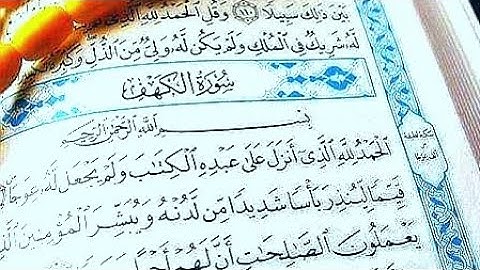 بَيْنَ ذَٰلِكَ سَبِيلًا ۝١١٠ وَقُلِ الْحَمْدُ لِلَّهِ الَّذِي
لَهُ شَرِيكٌ فِي الْمُلْكِ وَلَمْ يَكُن لَّهُ وَلِيٌّ مِّنَ الذُّلِّ وَكَبِّرْهُ
سُورَةُ الْكَهْفِ
بِسْمِ اللَّهِ الرَّحْمَٰنِ الرَّحِيمِ
الْحَمْدُ لِلَّهِ الَّذِي أَنزَلَ عَلَىٰ عَبْدِهِ الْكِتَابَ وَلَمْ يَجْعَل لَّهُ عِوَجًا
قَيِّمًا لِّيُنذِرَ بَأْسًا شَدِيدًا مِّن لَّدُنْهُ وَيُبَشِّرَ الْمُؤْمِنِينَ
يَعْمَلُونَ الصَّالِحَاتِ أَنَّ لَهُمْ